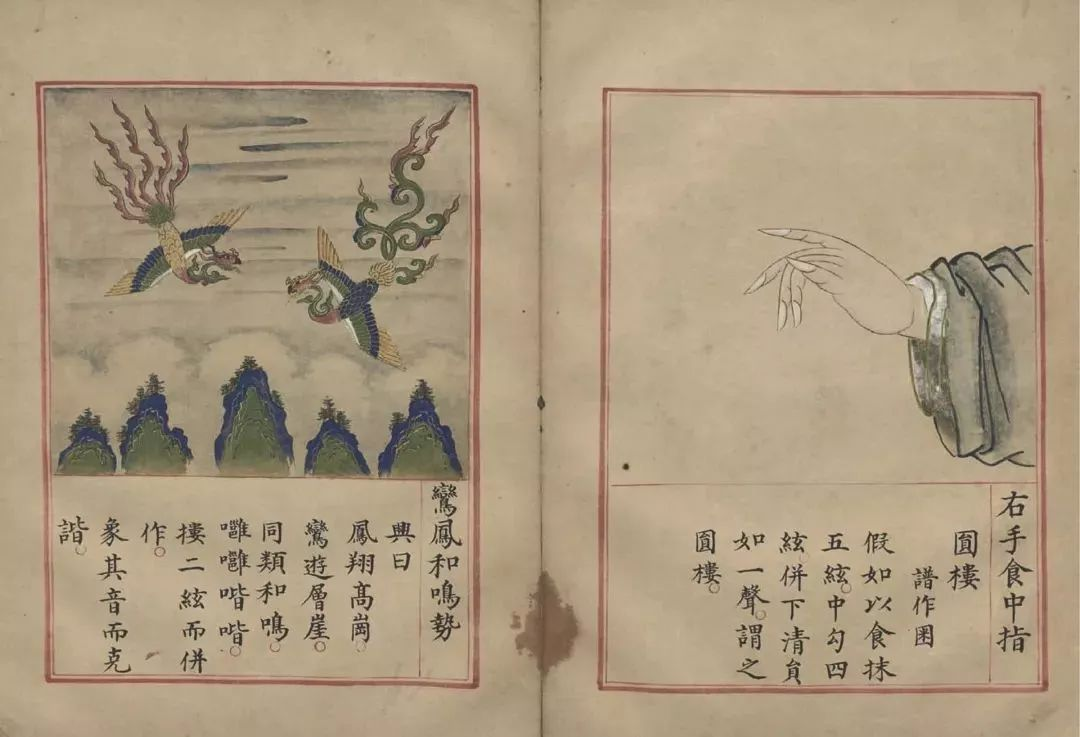 右手食中指
圎樓
譜作
假如以食抹
五絃。中勾四
絃併下清貟
如一聲。謂之
圎樓。
鸞鳳和鳴勢
興曰
鳳翔髙崗。
鸞遊層崖。
同類和鳴。
噰噰喈喈。
摟二絃而併
作。
象其音而克
諧。